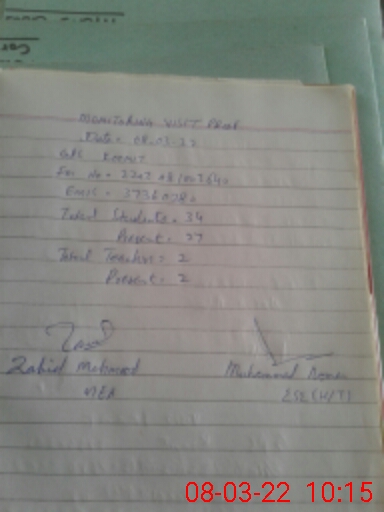 MONITORING VISIT PROF
Date = 08.03.22
GPS
For No =
EMIS = 
Total Students = 34
Present = 27
Total Teachers = 2
Present = 2
Zahid Mahmood
MEA
Muhammad
ESE (H/T)
08-03-22 10:15